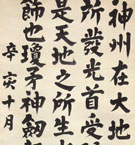 神州在大地
所發光首受
是天地之所生
飾也瓊矛神劔
辛亥十月